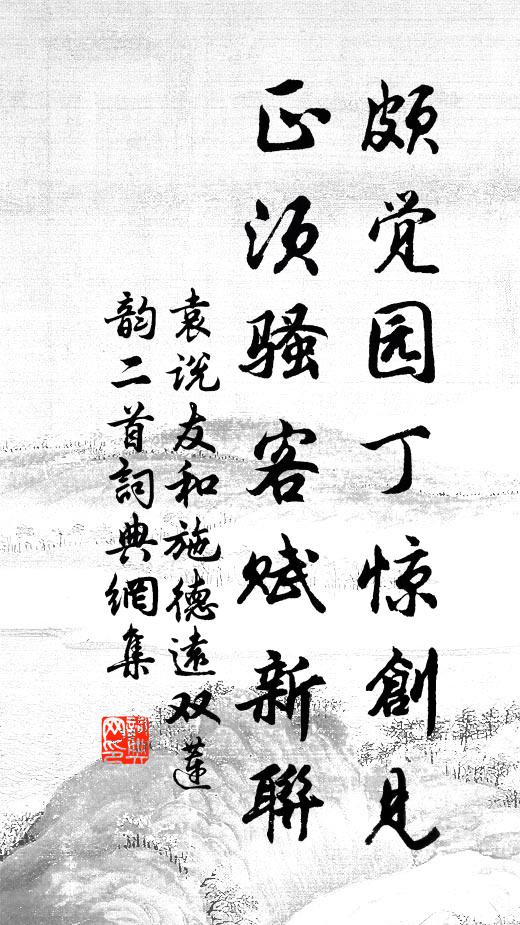 颇觉园丁惊創见
正须骚客赋新聯
袁说友和施德遠双蓮
韵二首詞典網集